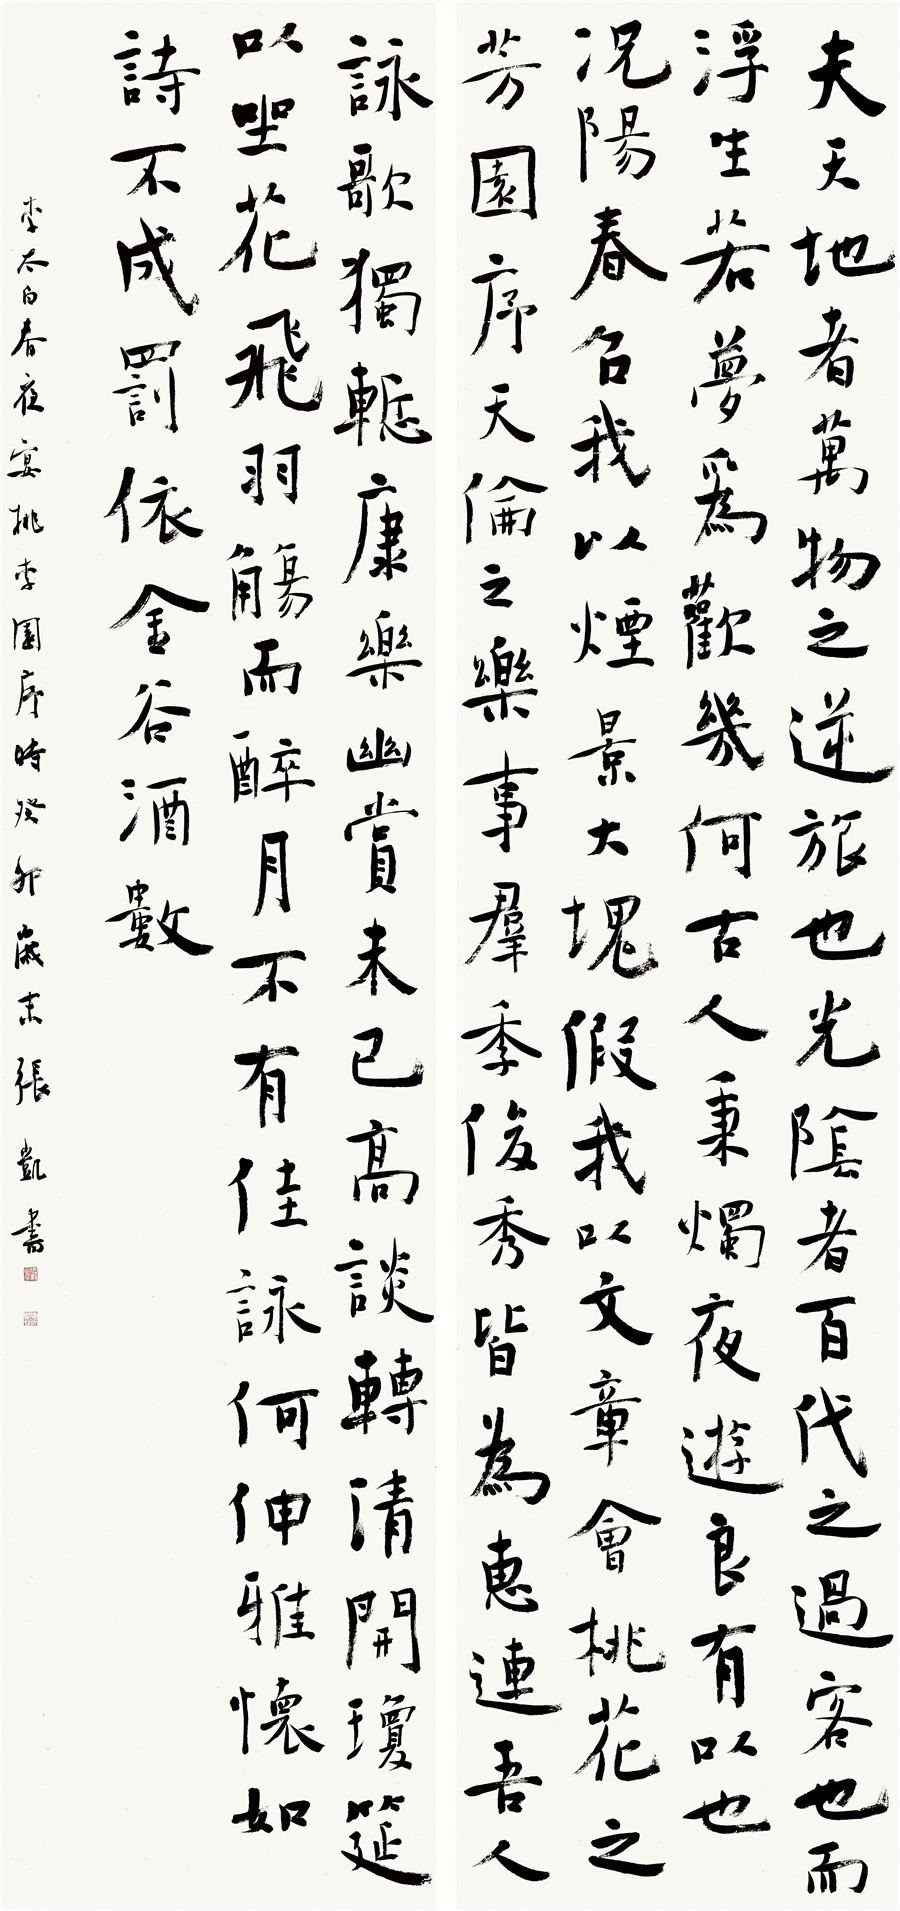 夫天地者萬物之逆旅也光陰者百代之過客也而
浮生若夢爲歡幾何古人秉燭夜遊良有以也
况陽春召我以煙景大塊假我以文章會桃花之
芳園序天倫之樂事羣季俊秀皆為惠連吾人
詠歌獨慙康樂幽賞未已高談轉清開瓊筵
以坐花飛羽觴而醉月不有佳詠何伸雅懷如
詩不成罰依金谷酒數
李太白春夜宴桃李園序時癸卯歲末張凱書